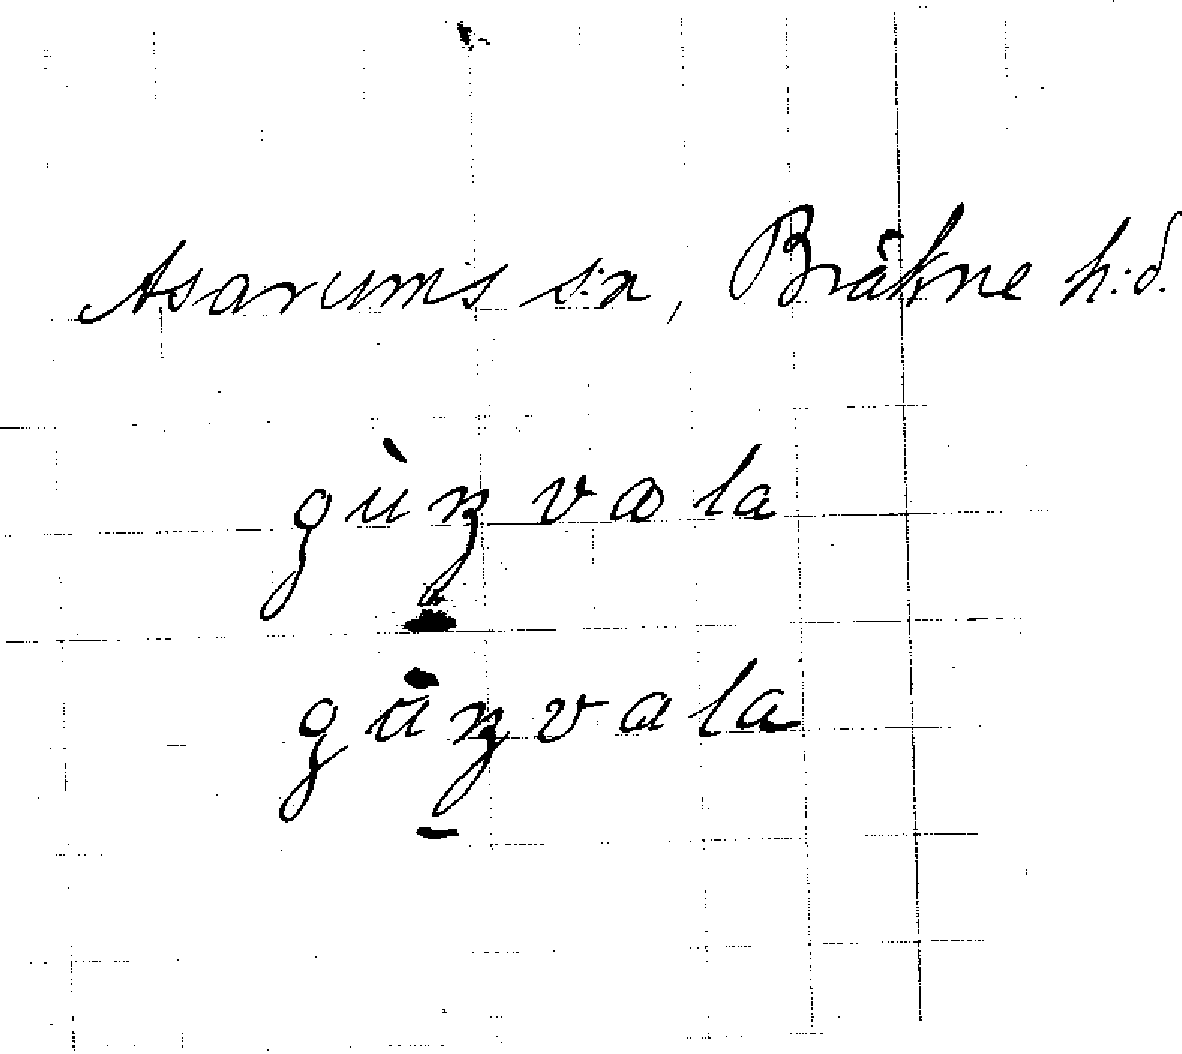 Asarums s:n, Bräkne h:d.
gùŋvala
gùŋvala